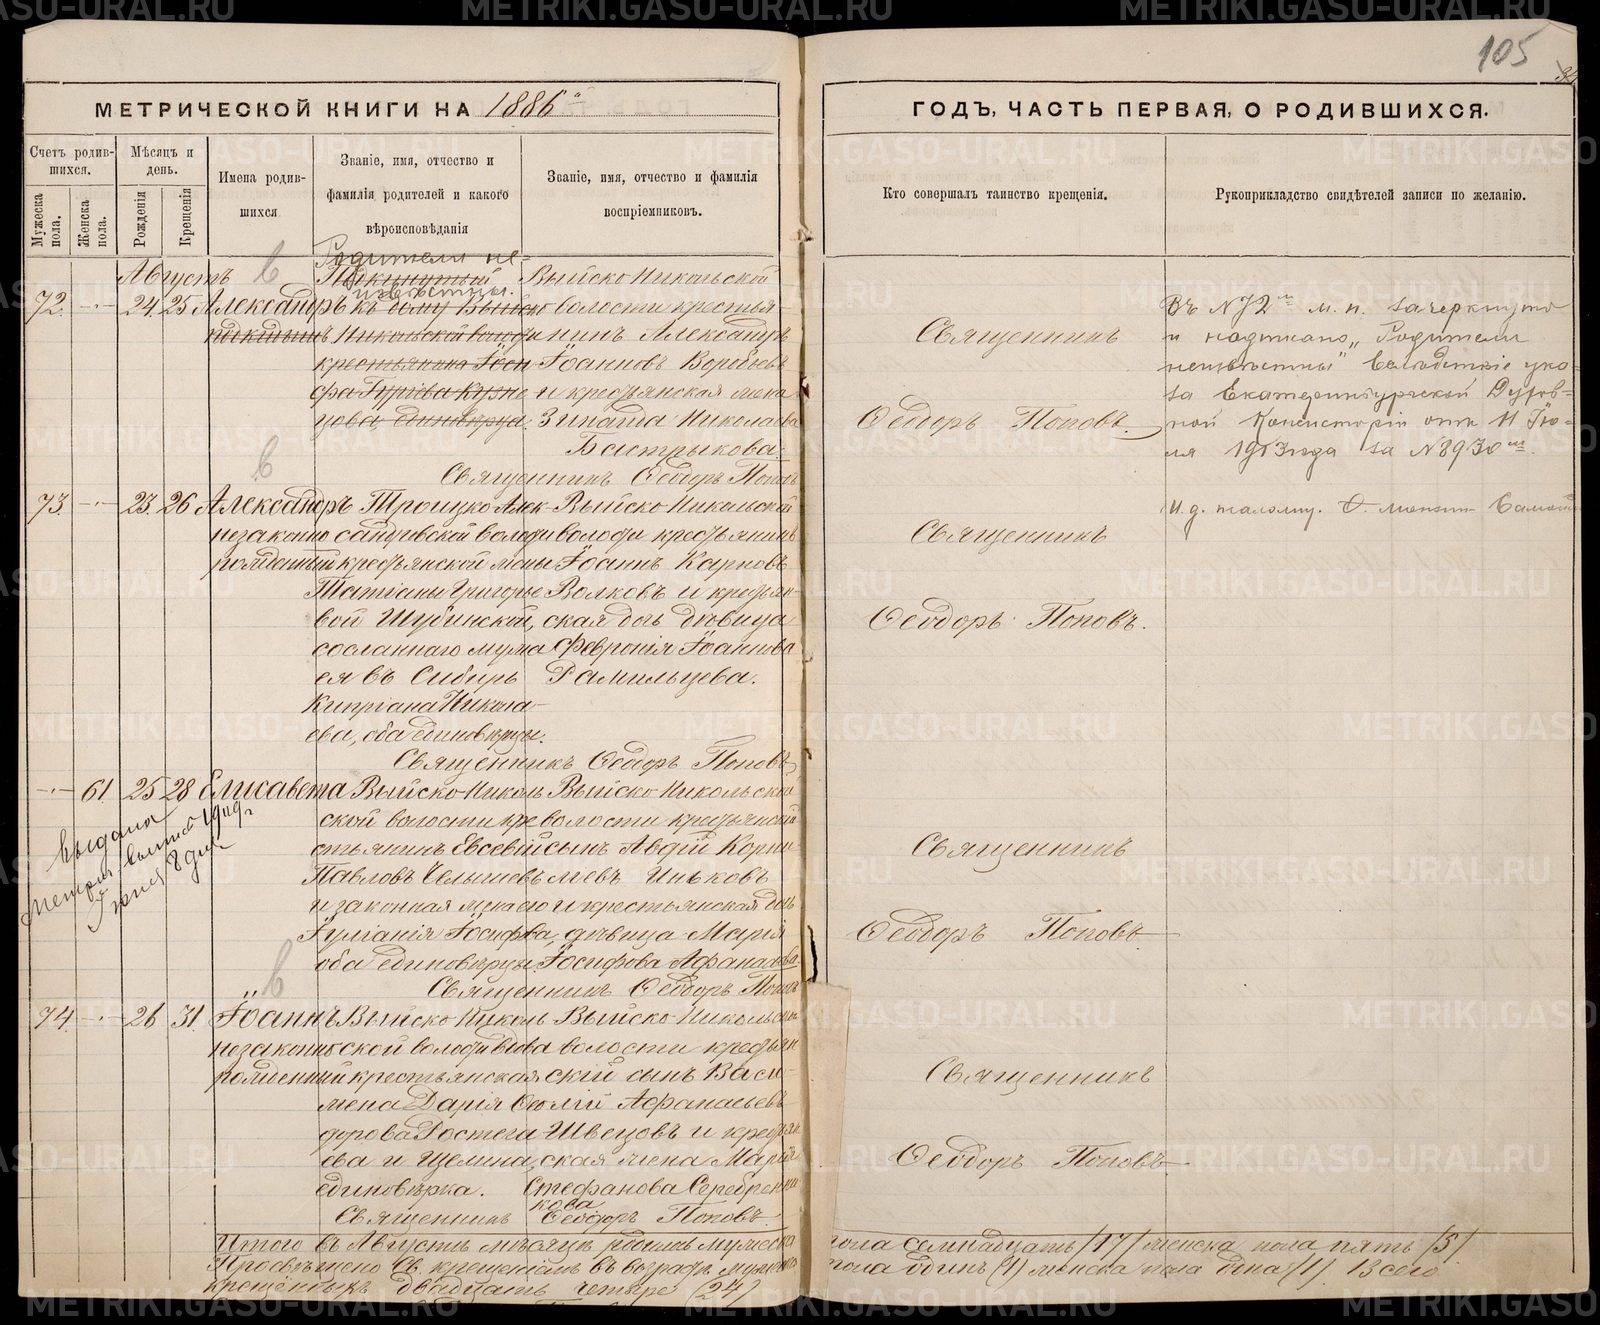 105
МЕТРИЧЕСКОЙ КНИГИ НА 1886
ГОДЪ, ЧАСТЬ ПЕРВАЯ, О РОДИВШИХСЯ.
Счетъ родившихся.
Мужеска пола.
Женска пола.
Мѣсяцъ и день.
Рожденія
Крещенія
Имена родившихся
Званіе, имя, отчество и фамилія родителей и какого вѣроисповѣданія
Званіе, имя, отчество и фамилія воспріемниковъ.
Кто совершалъ таинство крещенія.
Рукоприкладство свидѣтелей записи по желанію.
Августъ
72. 24. 25 Александръ
подкидышъ
Родители не-
извѣстны.
Подкинутый
къ дому Выйско
Никольской волости
крестьянина Іоси
фа Гуріева Кузне
цова, единовѣрца.
Выйско Никольской
волости крестья-
нинъ Александръ
Іоанновъ Воробьевъ
и крестьянская жена
Николаева
Бастрыкова.
Священникъ Ѳеодоръ Поповъ
Священникъ
Ѳеодоръ Поповъ.
Въ №72 м. п. зачеркнуто
и надписано „Родители
неизвѣстны" вслѣдствіе ука-
за Екатеринбургской Духов-
ной Консисторіи отъ 11 Ію-
ля 1913 года за №8930
И. д. псаломщ.
73. 23. 26 Александръ
незаконно
рожденный
Троицко Алек-
сандровской волости
крестьянской жены
Татіаны Григорье
вой Шубинской,
сосланнаго мужа
ея въ Сибирь
Кипріана Никола-
ева, оба единовѣрцы.
Выйско Никольской
волости крестьянинъ
Іоаннъ Карповъ
Волковъ и крестьян-
ская дочь дѣвица
Февронія Іоаннова
Рамильцева.
Священникъ Ѳеодоръ Поповъ
Священникъ
Ѳеодоръ Поповъ.
61. 25 28 Елисавета
Выдана
1909 г
8 дня
Выйско Николь
ской волости кре
стьянинъ Евсевій
Павловъ Челышевъ
и законная жена его
Іуліанія Іосифова,
оба единовѣрцы
Выйско Никольской
волости крестьянскій
сынъ Авдій Корни
ліевъ Ипковъ
и крестьянская дочь
дѣвица Марія
Іосифова Афанасьева.
Священникъ Ѳеодоръ Поповъ
Священникъ
Ѳеодоръ Поповъ
74. 26 31. Іоаннъ
незаконно
рожденный
Выйско Николь
ской волости
крестьянская
жена Дарія Ѳео
дорова
единовѣрка.
Выйско Никольской
волости крестьян
скій сынъ Васи-
лій Афанасьевъ
Швецовъ и крестьян
ская жена Марія
Стефанова Серебрен
кова
Священникъ Ѳеодоръ Поповъ.
Священникъ
Ѳеодоръ Поповъ
Итого въ Августѣ мѣсяцѣ родилось мужеска пола семнадцать /17/ женска пола пять /5/
Просвѣщено Св. крещеніемъ въ возрастѣ мужеска пола одинъ (1) женска пола одна (1). Всего
крещеныхъ двадцать четыре (24)
METRIKI.GASO-URAL.RU